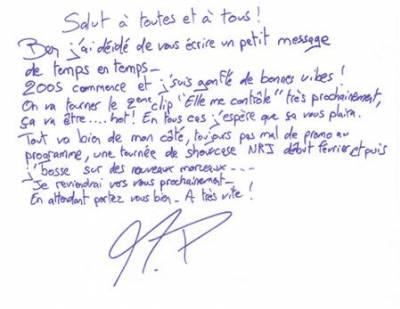 Salut à toutes et à tous !
Bon j'ai décidé de vous écrire un petit message
de temps en temps_
2005 commence et j'suis gonflé de bonnes vibes !
On va tourner le 2ème clip "Elle me contrôle" très prochainement,
ça va être....hot! En tous cas j'espère que ça vous plaira.
Tout va bien de mon côté, toujours pas mal de promo au
programme, une tournée de showcase NRJ début février et puis
j'bosse sur des nouveaux morceaux---
Je reviendrai vers vous prochainement_
En attendant portez vous bien_ A très vite !
M.P